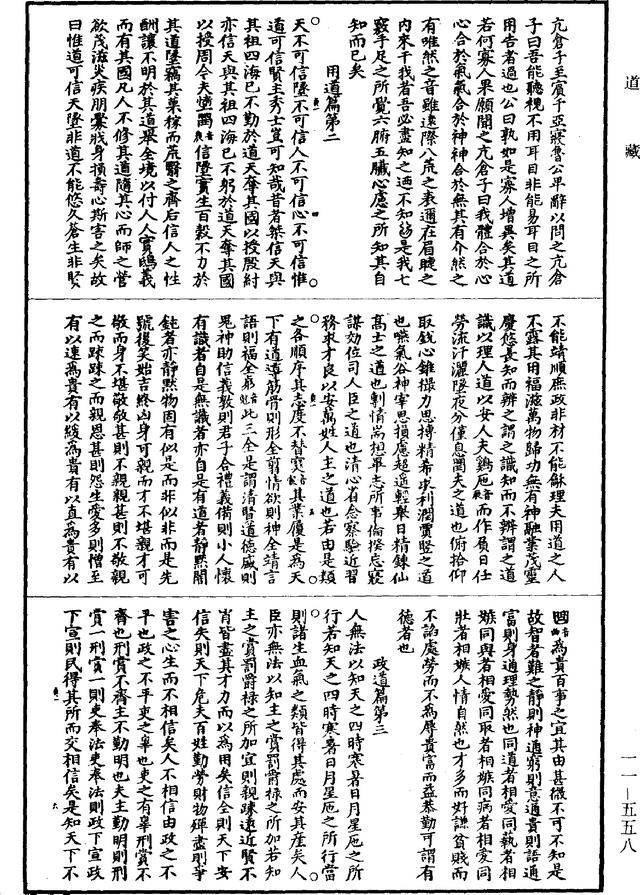 道藏
亢倉子至賓于亞寢魯公卑辭以問之亢倉
子曰吾能聽視不用耳目非能易耳目之所
用告者過也公曰孰如是寡人增異矣其道
若何寡人果願聞之亢倉子曰我體合於心
心合於氣氣合於神神合於無其有介然之
有唯然之音雖遠際八荒之表邇在眉睫之
內來干我者吾必盡知之迺不知為是我七
竅手足之所覺六腑五臟心慮之所知其自
知而已矣
用道篇第二
天不可信墬不可信人不可信心不可信惟
道可信賢主秀士豈可知哉昔者桀信天與
其祖四海已不勤於道天奪其國以授殷紂
亦信天與其祖四海已不躬於道天奪其國
以授周今夫信墬實生百穀不力於
其道墬竊其菓稼而荒翳之齊后信人之性
酬讓不明於其道舉全境以付人人實鴟義
而有其國凡人不修其道隨其心而師之營
欲茂滋炎疾朋釁戕身損壽心斯害之矣故
曰惟道可信天墬非道不能悠久蒼生非賢
不能靖順庶政非材不能龢理夫用道之人
不露其用福滋萬物歸功無有神融業茂靈
慶悠長知而辨之謂之識知而不辨謂之道
識以理人道以安人夫鷄而作負日任
勞流汗灑墬夜分僅息夫之道也俯拾仰
取銳心錐撮力思搏精希求利潤賈豎之道
也嚥氣谷神宰思損慮超遥輕舉日精鍊仙
高士之道也剬情尚想畢志所事倫揆忘寢
謀効位司人臣之道也清心省念察驗近習
務求才良以安萬姓人主之道也若由是類
之各順序其志度不替塞其業履是為天
下有道導筋骨則形全翦情欲則神全靖言
語則福全此三全是謂清賢道德盛則
鬼神助信義敦則君子合禮義備則小人懷
有識者自是無識者亦自是有道者靜黙闇
鈍者亦靜黙物固有似是而非似非而是先
號後笑始吉終凶身可親而才不堪親才可
敬而身不堪敬敬甚則不親親甚則不敬親
之而踈踈之而親恩甚則怨生愛多則憎至
有以速為貴有以緩為貴有以直為貴有以
為貴百事之宜其由甚微不可不知是
故智者難之靜則神通窮則意通貴則語通
富則身通理勢然也同道者相愛同藝者相
嫉同與者相愛同取者相嫉同病者相愛同
壯者相嫉人情自然也才多而好謙貧賤而
不諂處勞而不為辱貴富而益恭勤可謂有
德者也
政道篇第三
人無法以知天之四時寒暑日月星之所
行若知天之四時寒暑日月星之所行當
則諸生血氣之類皆得其處而安其產矣人
臣亦無法以知主之賞罰爵禄之所加若知
主之賞罰爵禄之所加宜則親踈遠近賢不
肖皆盡其才力而以為用矣信全則天下安
信失則天下危夫百姓勤勞財物殫盡則爭
害之心生而不相信矣人不相信由政之不
平也政之不平吏之辠也吏之有辠刑賞不
齊也刑賞不齊主不勤明也夫主勤明則刑
賞一刑賞一則吏奉法吏奉法則政下宣政
下宣則民得其所而交相信矣是知天下不
一一—五五八